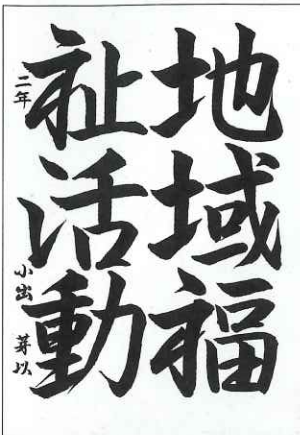 地域福
祉活動
二年 小出 芽以